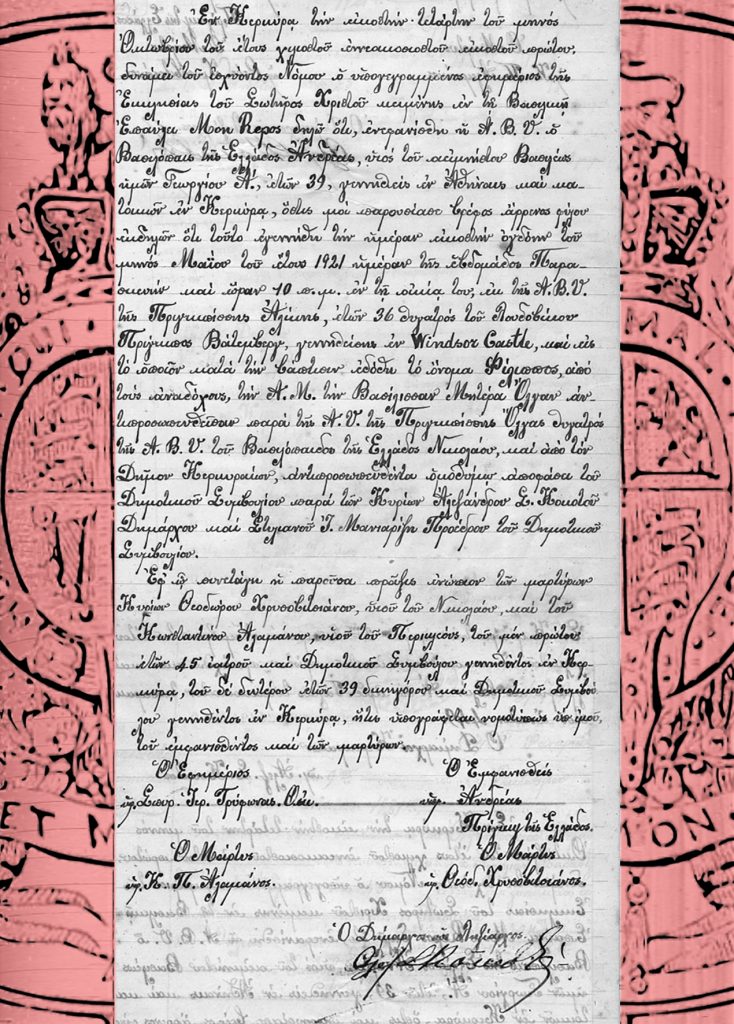 Ἐν Κερκύρᾳ τὴν εἰκοστὴν τετάρτην τοῦ μηνὸς
Ὀκτωβρίου τοῦ ἔτους χιλιοστοῦ ἐννεακοσιοστοῦ εἰκοστοῦ πρώτου,
δυνάμει τοῦ ἰσχύοντος Νόμου ὁ ὑπογεγραμμένος ἐφημέριος τῆς
Ἐκκλησίας τοῦ Σωτῆρος Χριστοῦ κειμένης ἐν τῇ Βασιλικῇ
Ἐπαύλει Mon Repos δηλῶ ὅτι, ἐνεφανίσθη ἡ Α. Β. Υ. ὁ
Βασιλόπαις τῆς Ἑλλάδος Ἀνδρέας, υἱὸς τοῦ ἀειμνήστου Βασιλέως
ἡμῶν Γεωργίου Α΄, ἐτῶν 39, γεννηθεὶς ἐν Ἀθήναις καὶ κα-
τοικῶν ἐν Κερκύρᾳ, ὅστις μοὶ παρουσίασε βρέφος ἄρρενος φύλου
ἐκδηλῶν ὅτι τοῦτο ἐγεννήθη τὴν ἡμέραν εἰκοστὴν ὀγδόην τοῦ
μηνὸς Μαΐου τοῦ ἔτους 1921 ἡμέραν τῆς ἑβδομάδος Παρα-
σκευὴν καὶ ὥραν 10 π. μ. ἐν τῇ οἰκίᾳ του, ἐκ τῆς Α. Β. Υ.
τῆς Πριγκηπίσσης Ἀλίκης, ἐτῶν 36 θυγατρὸς τοῦ Λουδοβίκου
Πρίγκιπος Βάτεμβεργ, γεννηθείσης ἐν Windsor Castle, καὶ εἰς
τὸ ὁποῖον κατὰ τὴν βάπτισιν ἐδόθη τὸ ὄνομα Φίλιππος, ἀπὸ
τοὺς ἀναδόχους, τὴν Α. Μ. τὴν Βασίλισσαν Μητέρα Ὄλγαν ἀν-
τιπροσωπευθεῖσαν παρὰ τῆς Α. Υ. τῆς Πριγκηπίσσης Ὄλγας θυγατρὸς
τῆς Α. Β. Υ. τοῦ Βασιλόπαιδος τῆς Ἑλλάδος Νικολάου, καὶ ἀπὸ τὸν
Δῆμον Κερκυραίων, ἀντιπροσωπευθέντα ὁμοθύμῳ ἀποφάσει τοῦ
Δημοτικοῦ Συμβουλίου παρὰ τῶν Κυρίων Ἀλεξάνδρου Σ. Κοκοτοῦ
Δημάρχου καὶ Στυλιανοῦ Ι. Μανιαρίζη Προέδρου τοῦ Δημοτικοῦ
Συμβουλίου.
Ἐφ' ᾧ συνετάγη ἡ παροῦσα πρᾶξις ἐνώπιον τῶν μαρτύρων
Κυρίων Θεοδώρου Χρυσοβιτσιάνου, υἱοῦ τοῦ Νικολάου, καὶ τοῦ
Κωνσταντίνου Ἀλαμάνου, υἱοῦ τοῦ Περικλέους, τοῦ μὲν πρώτου
ἐτῶν 45 ἰατροῦ καὶ Δημοτικοῦ Συμβούλου γεννηθέντος ἐν Κερ-
κύρᾳ, τοῦ δὲ δευτέρου ἐτῶν 39 δικηγόρου καὶ Δημοτικοῦ Συμβού-
λου γεννηθέντος ἐν Κερκύρᾳ, ἥτις ὑπογράφεται νομοτύπως ὑπ' ἐμοῦ,
τοῦ ἐμφανισθέντος καὶ τῶν μαρτύρων.
Ὁ Ἐφημέριος Ὁ Ἐμφανισθεὶς
ὑπ. Σπυρ. Ἱερ. Τρύφωνας. Οἰκ. ὑπ. Ἀνδρέας
Πρίγκηψ τῆς Ἑλλάδος.
Ὁ Μάρτυς Ὁ Μάρτυς
ὑπ. Κ. Π. Ἀλαμάνος. ὑπ. Θεόδ. Χρυσοβιτσιάνος.
Ὁ Δήμαρχος Ληξίαρχος
QUI
MAL
ET M
TON